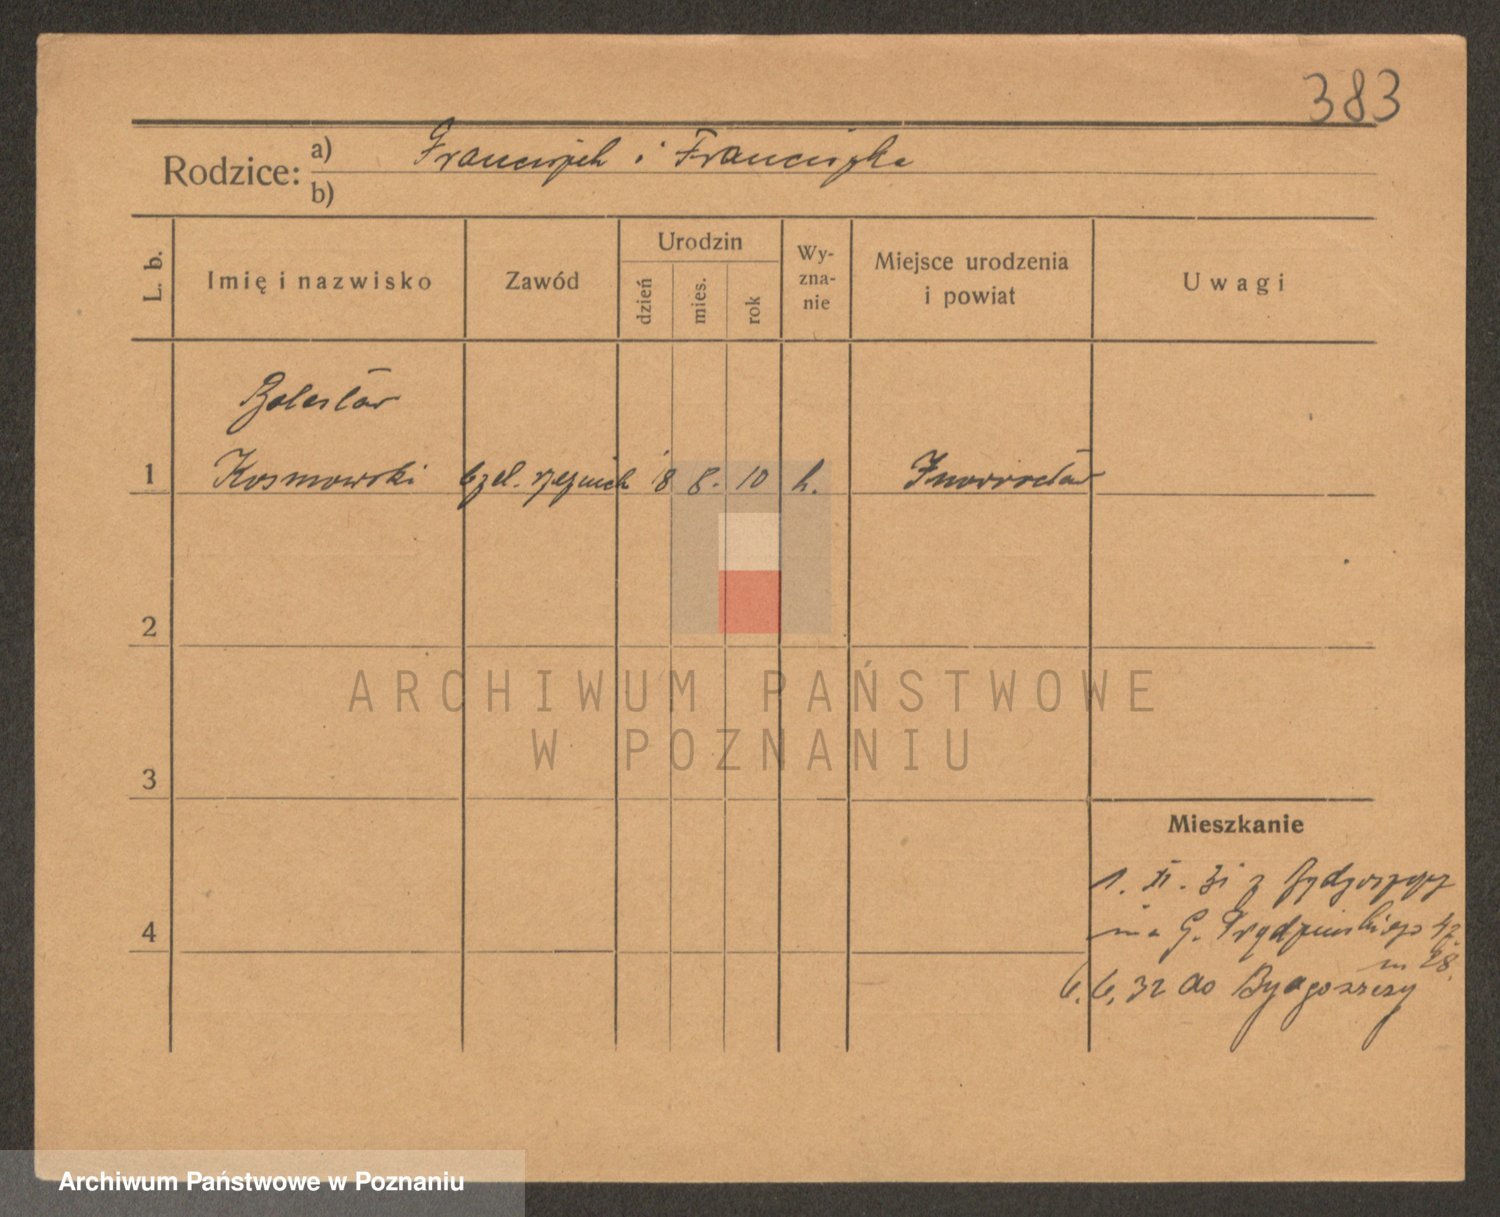 383
Rodzice: a) Franciszek i Franciszka
b)
L. b.
Imię i nazwisko
Zawód
Urodzin
dzień
mies.
rok
Wy-
zna-
nie
Miejsce urodzenia
i powiat
Uwagi
Bolesław
1 Kosmowski czel. rzeźnick 18 8. 10 k. Inowrocław
2
ARCHIWUM PAŃSTWOWE
W POZNANIU
3
Mieszkanie
1. XI. 31 z Bydgoszczy
na G. Prądzyńskiego 47
m 28.
4
6. 6. 32 do Bydgoszczy
Archiwum Państwowe w Poznaniu